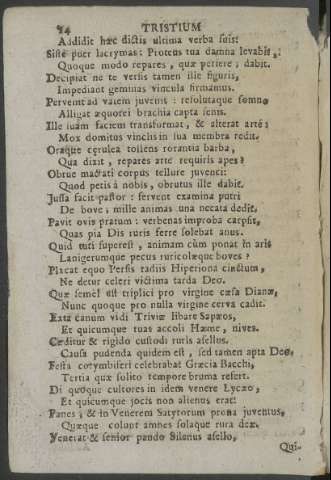 94 TRISTIUM
Addidit hæc dictis ultima verba suis:
Siste puer lacrymas: Proteus tua damna levabit,
Quoque modo repares, quæ periere, dabit.
Decipiat ne te versis tamen ille figuris,
Impediant geminas vincula firmamus.
Pervenit ad vatem juvenis: resolutaque somno
Alligat æquorei brachia capta senis.
Ille suam faciem transformat, & alterat arte:
Mox domitus vinclis in sua membra redit.
Oraque cęrulea tollens rorantia barba,
Qua dixit, repares arte requiris apes?
Obrue mactati corpus tellure juvenci:
Quod petis à nobis, obrutus ille dabit.
Jussa facit pastor: fervent examina putri
De bove; mille animas una necata dedit.
Pavit ovis pratum: verbenas improba carpsit,
Quas pia Dis ruris ferre solebat anus.
Quid tuti superest, animam cùm ponat in aris
Lanigerumque pecus ruricolæque boves?
Placat equo Persis radiis Hiperiona cinctum,
Ne detur celeri victima tarda Deo.
Quæ semel est triplici pro virgine cæsa Dianæ,
Nunc quoque pro nulla virgine cerva cadit.
Exta canum vidi Triviæ libare Sapæos,
Et quicumque tuas accoli Hæme, nives.
Cæditur & rigido custodi ruris asellus.
Causa pudenda quidem est, sed tamen apta Deo.
Festa corymbiferi celebrabat Græcia Bacchi,
Tertia quæ solito tempore bruma refert.
Di quoque cultores in idem venere Lyczo,
Et quicumque jocis non alienus erat:
Panes, & in Venerem Satyrorum prona juventus,
Quæque colunt amnes solaque rura deæ.
Venerat & senior pando Silenus asello,
Qui-